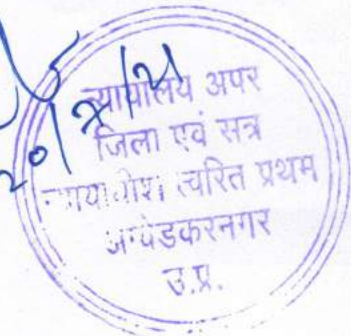 न्यायालय अपर
जिला एवं सत्र
न्यायाधीश त्वरित प्रथम
अम्बेडकरनगर
उ.प्र.